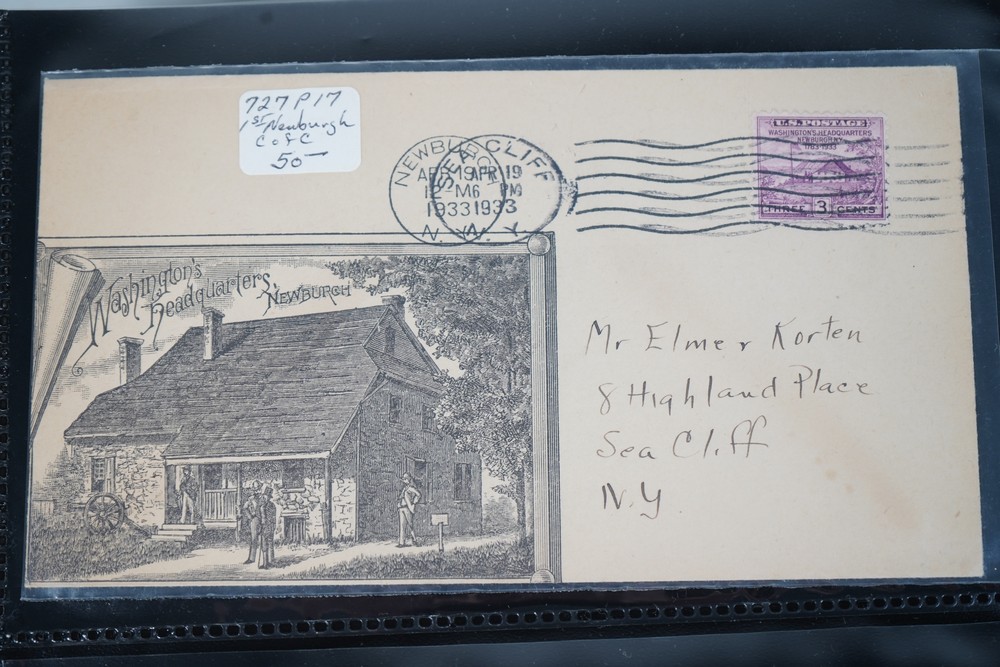 727 P17
1st Newburgh
C of C
50—
U.S. POSTAGE
WASHINGTON'S HEADQUARTERS
NEWBURGH N.Y.
1783-1933
THREE 3 CENTS
NEWBURGH
APR 19
1933
N.Y.
SEA CLIFF
APR 19
6 PM
1933
N.Y.
Washington's
Headquarters
NEWBURGH
Mr Elmer Korten
8 Highland Place
Sea Cliff
N.Y.